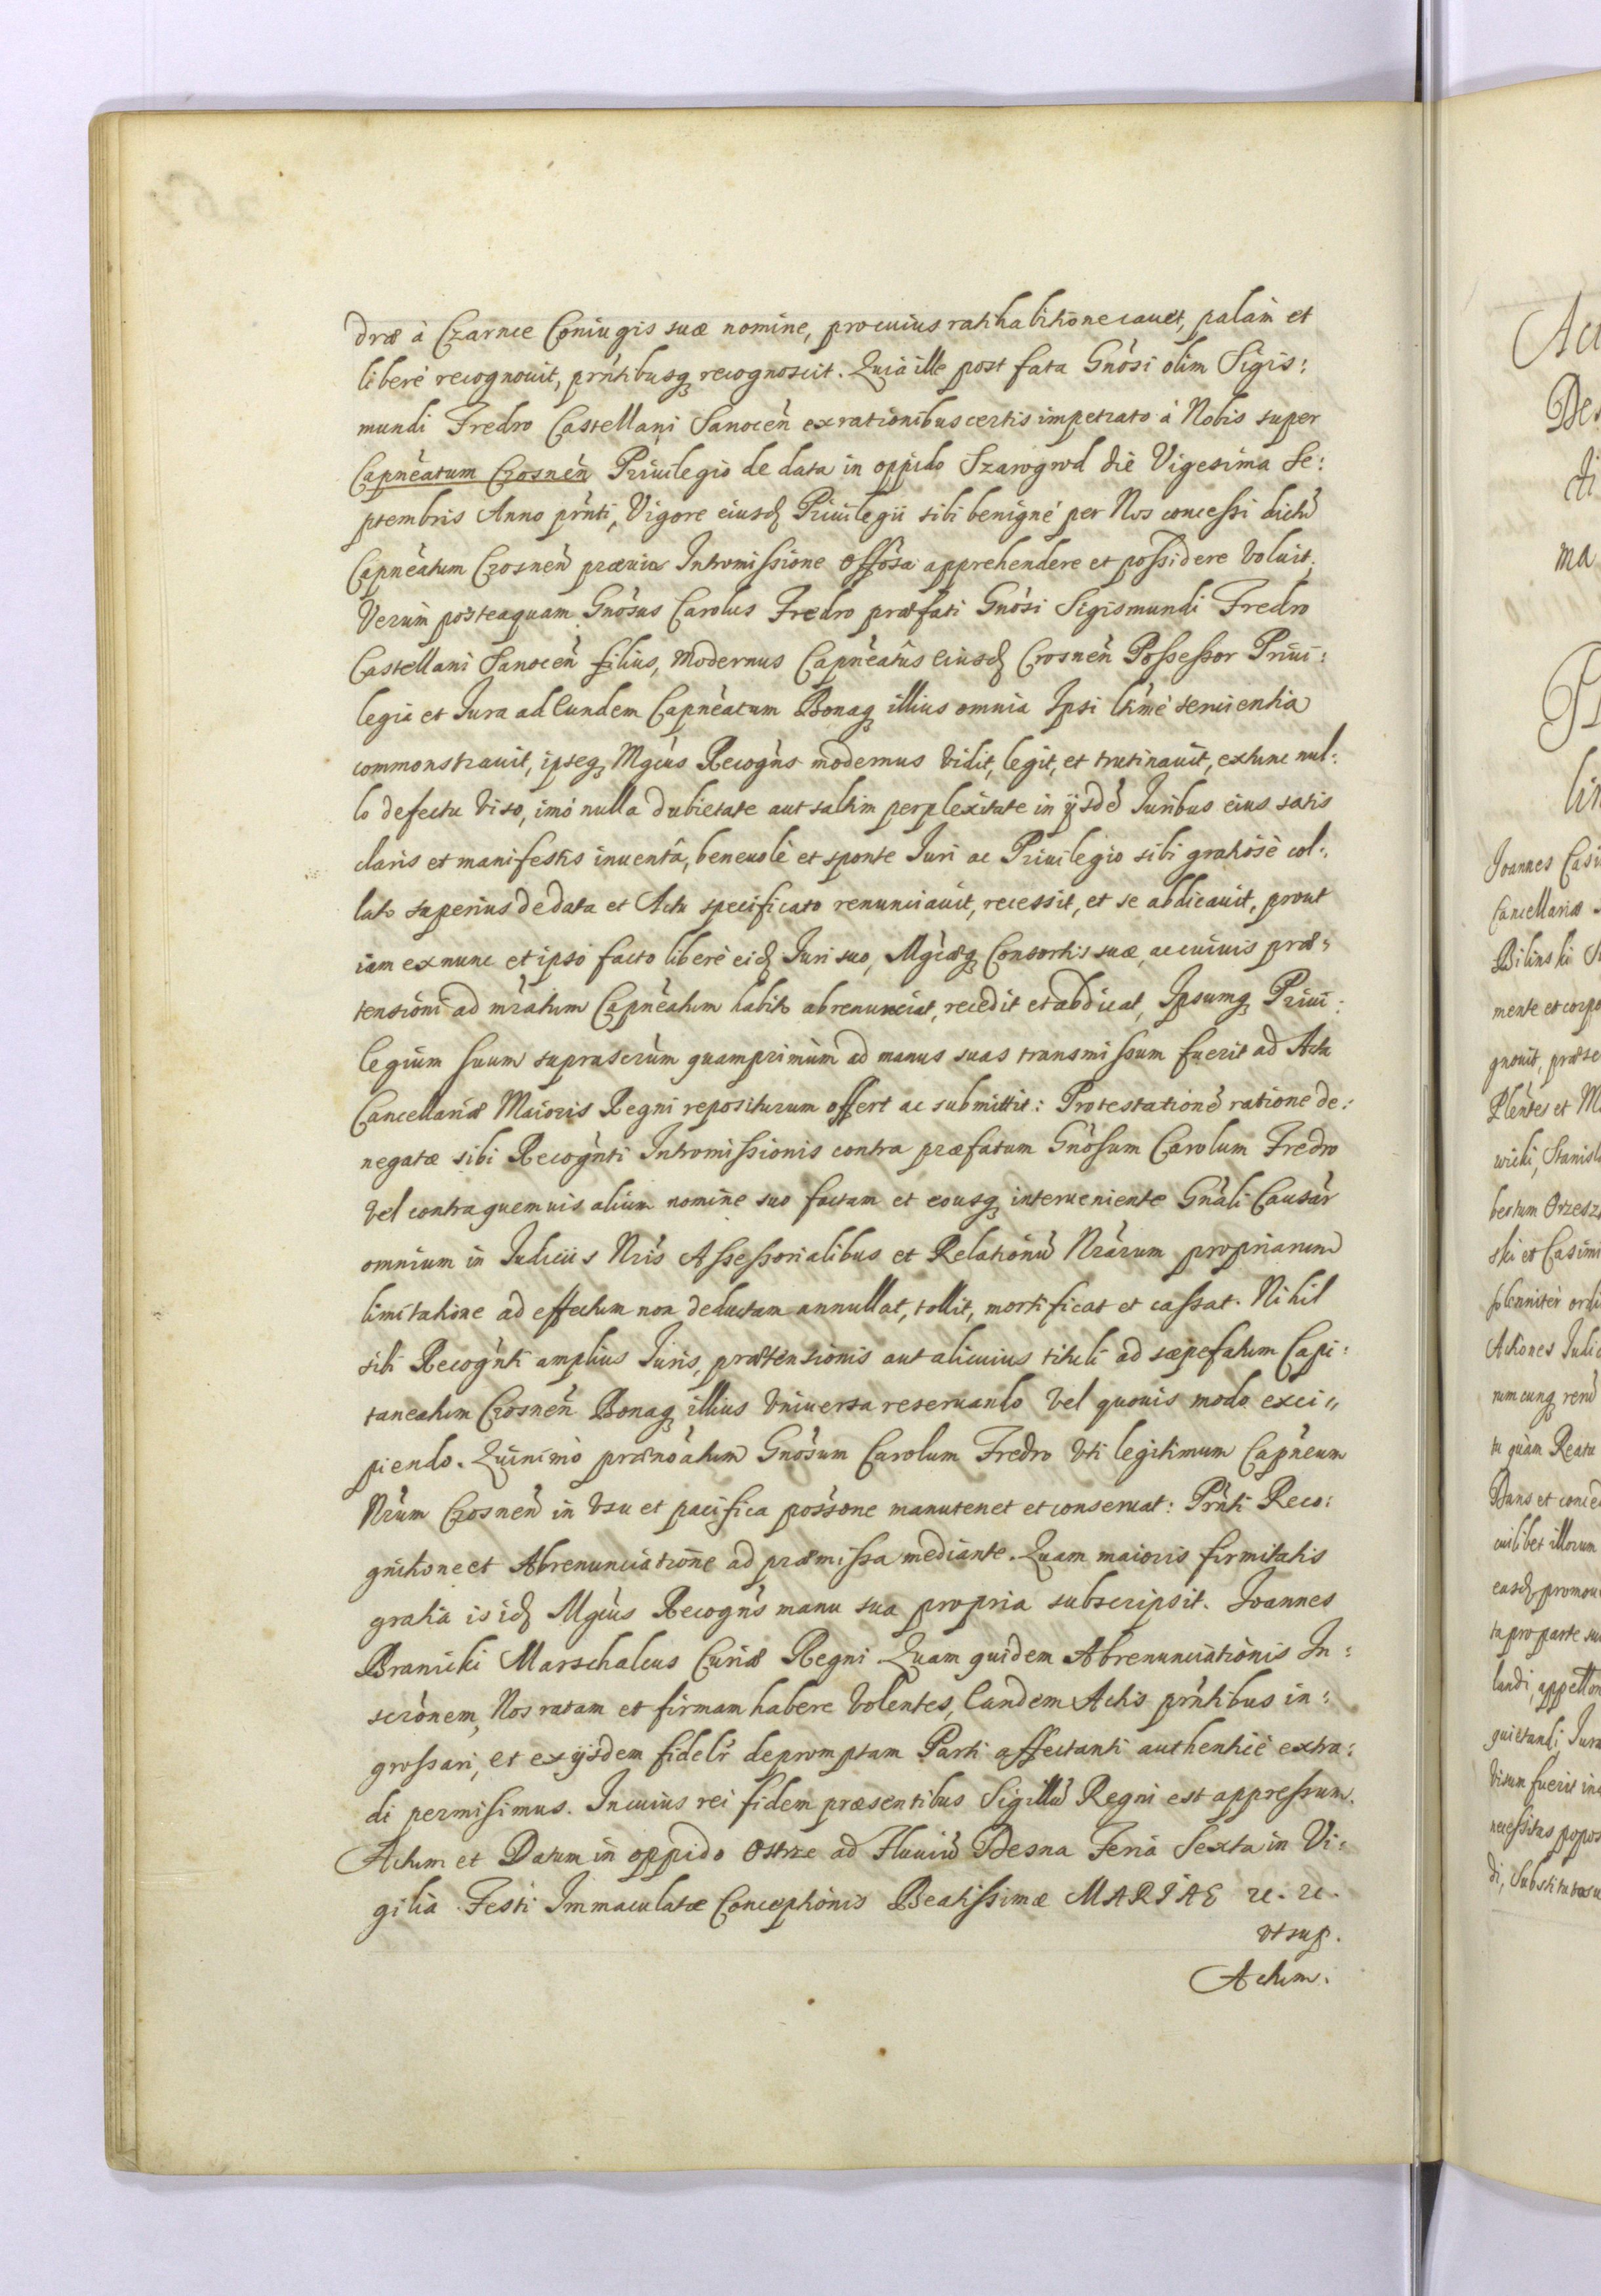 dræ à Czarnce Coniugis suæ nomine, pro cuius ratihabitione cauet, palàm et
liberè recognouit, prńtibusq3 recognoscit. Quia ille post fata Gnòsi olim Sigis:
mundi Fredro Castellani Sanocen̄ ex rationibus certis impetrato à Nobis super
Capneatum Crosnen̄ Priuilegio de data in oppido Szarogrod die Vigesima Se:
ptembris Anno prn̄ti, Vigore eiusd Priuilegii sibi benignè per Nos concessi dictū
Capneatum Crosnen̄ præuia Intromissione Offosa apprehendere et possidere Voluit,
Verùm posteaquam Gnòsus Carolus Fredro præfati Gnòsi Sigismundi Fredro
Castellani Sanocen̄ filius, modernus Capneatûs eiusd Crosnen̄ Possessor Priui:
legia et Iura ad Eundem Capneatum Bonaq3 illius omnia Ipsi ltmè seruientia
commonstrauit, ipseq3 Mgcus Recogn̄s modernus Vidit, legit, et trutinauit, extunc nul:
lo defectu Viso, imò nulla dubietate aut saltim perplexitate in ijsdē Iuribus eius satis
claris et manifestis inuentâ, beneuolè et sponte Iuri ac Priuilegio sibi gratiosè col:
lato superius de data et Actu specificato renunciauit, recessit, et se abdicauit, prout
iam ex nunc et ipso facto liberè eid Iuri suo, Mgcæq3 Consortis suæ, ac cuiuis præ:
tensioni ad mratum Capneatum habitæ abrenunciat, recedit et abdicat, Ipsumq3 Priui:
legium suum suprascrùm quamprimùm ad manus suas transmissum fuerit ad Acta
Cancellariæ Maioris Regni repositurum offert ac submittit: Protestationē ratione de:
negatæ sibi Recogn̄ti Intromissionis contra præfatum Gnòsum Carolum Fredro
Vel contra quemuis alium nomine suo factam et eousq3 interueniente Gnāli Causar̄
omnium in Iudiciis Nr̄is Assessorialibus et Relationū Nrarum propriarum
limitatione ad effectum non deductam annullat, tollit, mortificat et cassat. Nihil
sibi Recogn̄ti amplius Iuris, prætensionis aut alicuius tituli ad sæpefatum Capi:
taneatum Crosnen̄ Bonaq3 illius Vniuersa reseruando Vel quouis modo exci„
piendo. Quinimò prænoatum Gnòsum Carolum Fredro Vti legitimum Capneum
Nrum Crosnen̄ in Vsu et pacifica possone manutenet et conseruat: Prn̄ti Reco:
gnitione et Abrenunciatione ad præmissa mediante. Quam maioris firmitatis
gratia is id Mgcus Recogn̄s manu sua propria subscripsit. Joannes
Branicki Marschalcus Curiæ Regni Quam quidem Abrenunciationis In:
scrònem, Nos ratam et firmam habere Volentes, Eandem Actis prn̄tibus in:
grossari, et ex ijsdem fidelr̄ depromptam Parti affectanti authenticè extra:
di permisimus. In cuius rei fidem præsentibus Sigillū Regni est appressum.
Actum et Datum in oppido Ostrze ad Fluuiū Desna Feria Sexta in Vi:
gilia Festi Immaculatæ Conceptionis Beatissimæ MARIAE etc. etc.
vt sup.
Actum.